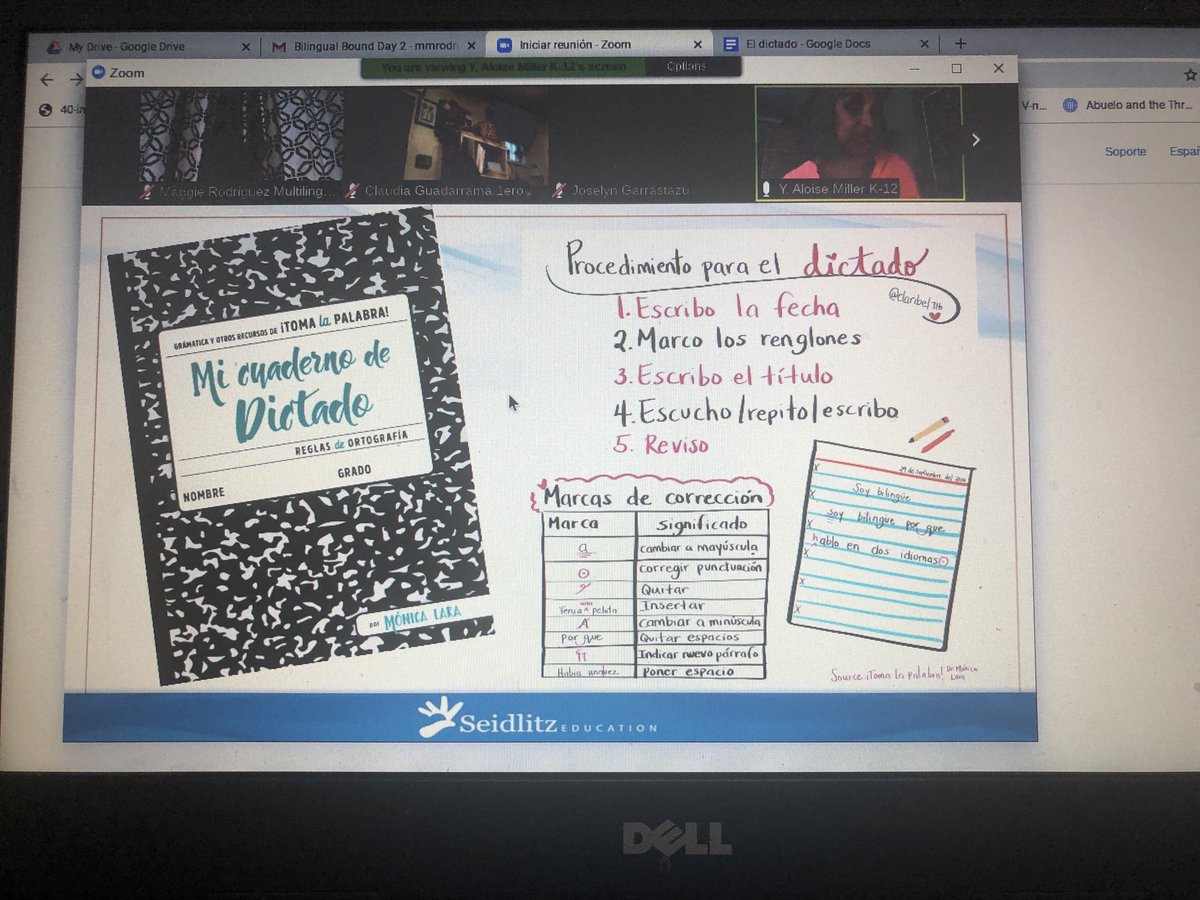 My Drive - Google Drive
Bilingual Bound Day 2 - mmrodri
Iniciar reunión - Zoom
El dictado - Google Docs
Zoom
You are viewing Y. Aloise Miller K-12's screen
Options
40-in
V-n...
Abuelo and the Thr...
Soporte
Españ
Maggie Rodriguez Multiling...
Claudia Guadarrama 1ero
Joselyn Garrastazu
Y. Aloise Miller K-12
GRAMÁTICA Y OTROS RECURSOS DE ¡TOMA la PALABRA!
Mi cuaderno de
Dictado
REGLAS de ORTOGRAFÍA
GRADO
NOMBRE
por MÓNICA LARA
Procedimiento para el dictado
@claribel716
1. Escribo la fecha
2. Marco los renglones
3. Escribo el título
4. Escucho/repito/escribo
5. Reviso
Marcas de corrección
Marca significado
a cambiar a mayúscula
corregir punctuación
Quitar
Tenía pelota Insertar
A cambiar a minúscula
por que Quitar espacios
Indicar nuevo párrafo
Había unavez Poner espacio
de septiembre del
Soy bilingüe
soy bilingue por que
hablo en dos idiomas
Source ¡Toma la palabra! Dr. Mónica
Lara
Seidlitz EDUCATION
DELL